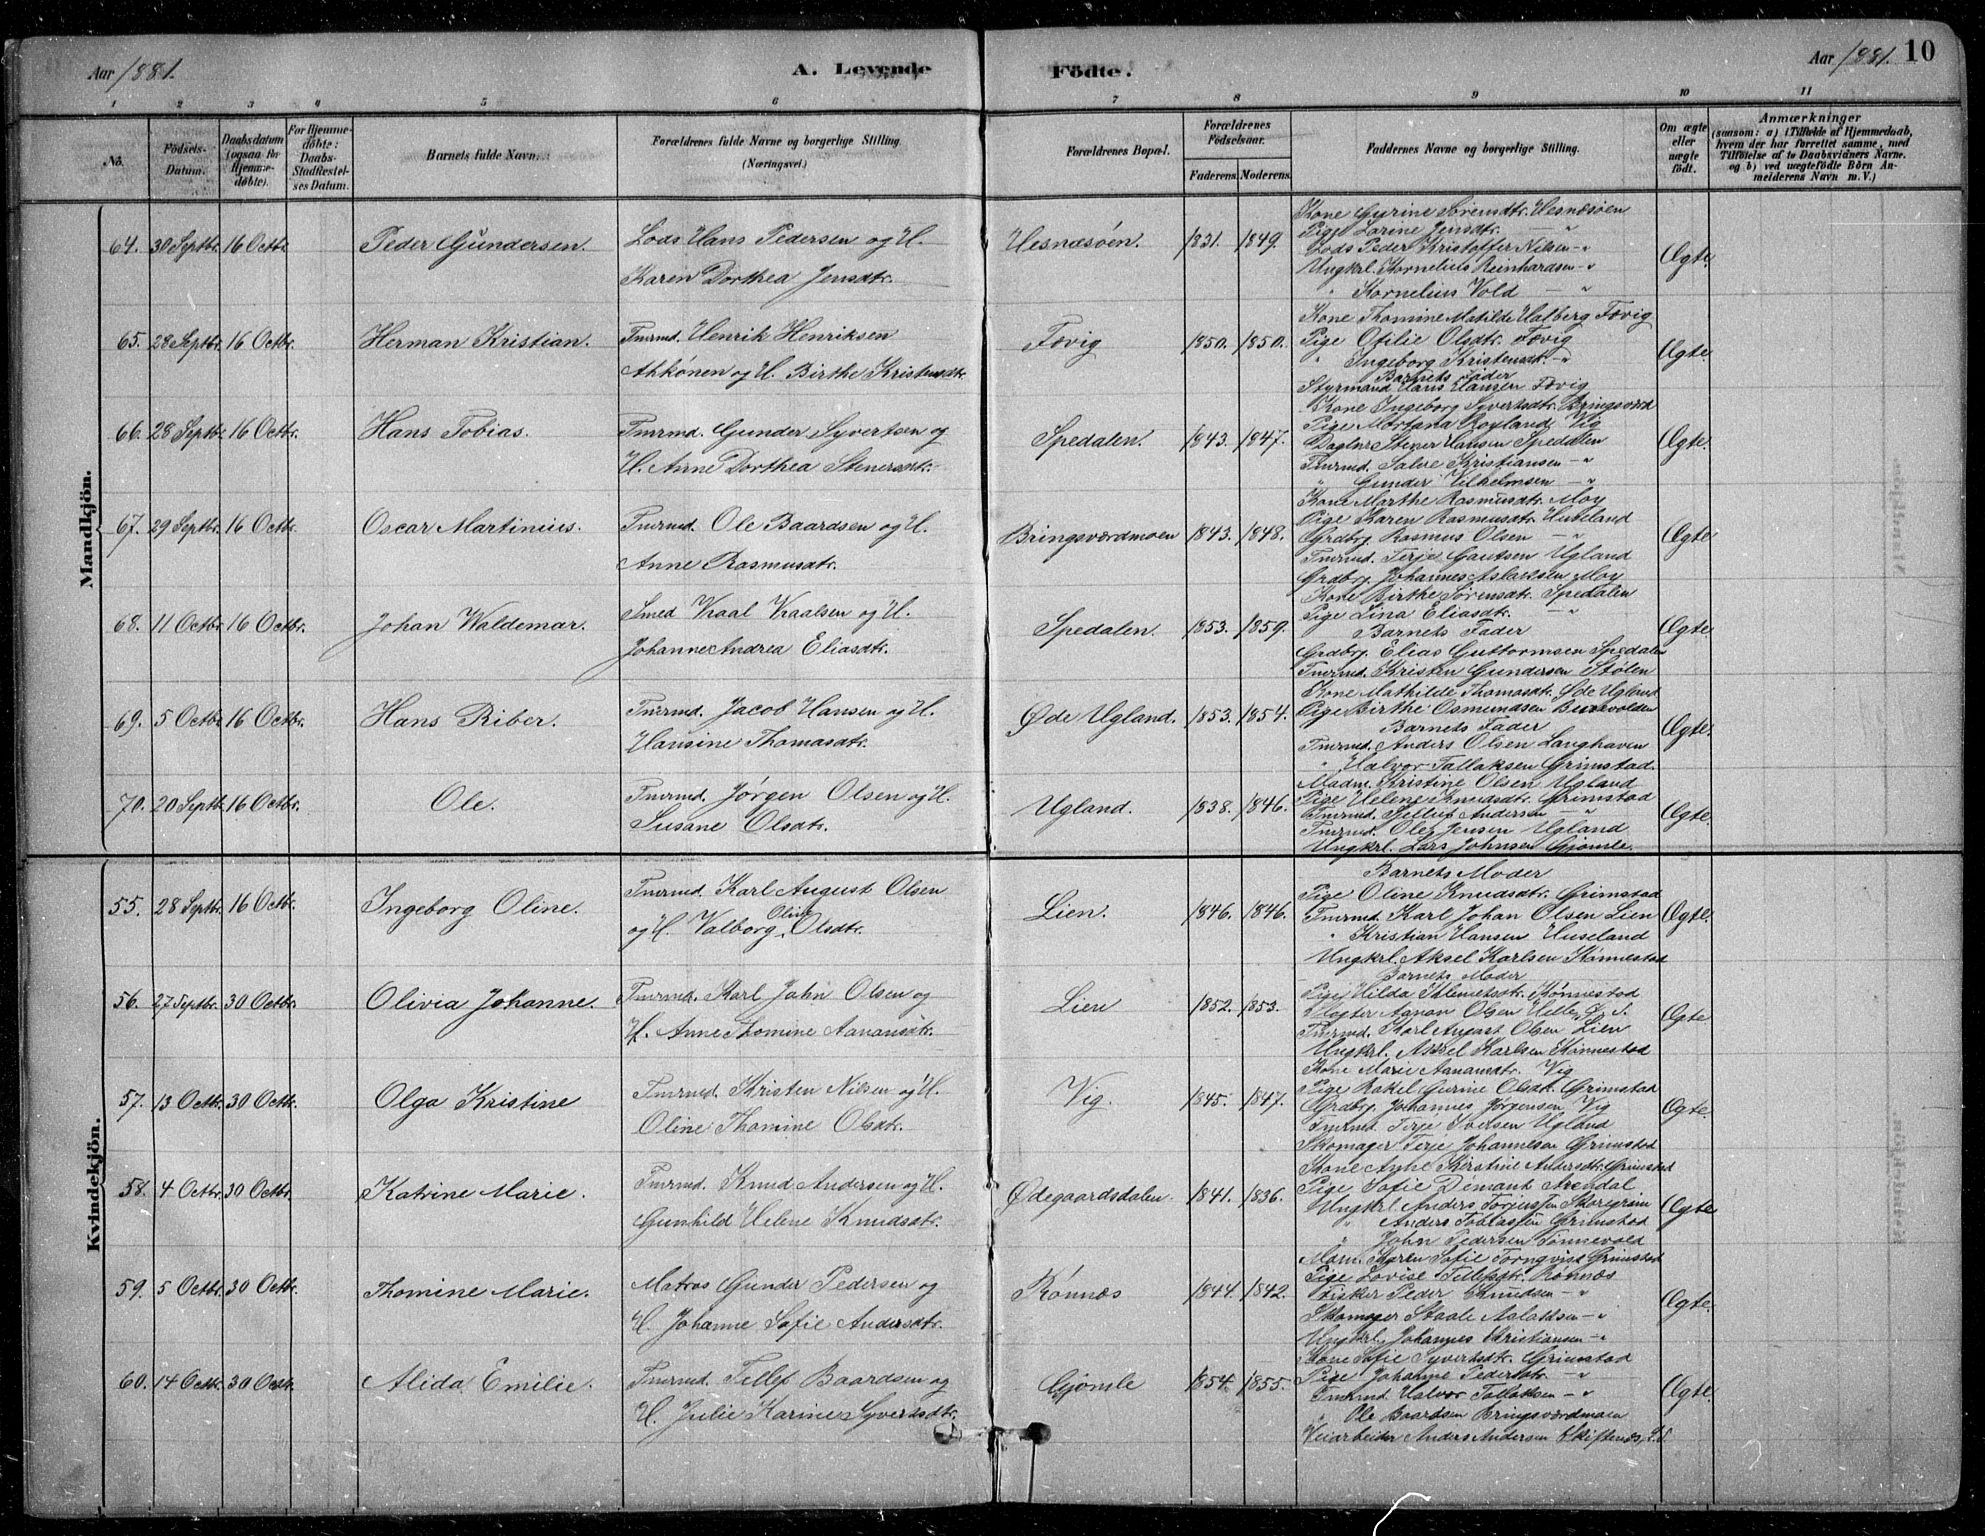 Aar 1881.
A. Levende
Födte.
Aar 1881. 10
1 2 3 4 5 6 7 8 9 10 11
No.
Födsels-Datum.
Daabsdatum (ogsaa for Hjemmedøbte).
For Hjemmedöbte: Daabs-Stadfæstelses Datum.
Barnets fulde Navn.
Forældrenes fulde Navne og borgerlige Stilling (Næringsvei.)
Forældrenes Bopæl.
Forældrenes Födselsaar.
Faderens. Moderens.
Faddernes Navne og borgerlige Stilling.
Om ægte eller uægte födt.
Anmærkninger
(saasom: a) i Tilfælde af Hjemmedaab, hvem der har forrettet samme, med Tilföielse af to Daabsvidners Navne. og b) ved uægtefödte Börn Anmelderens Navn m. V.)
Mandkjön.
64. 30 Septbr. 16 Octbr. Peder Gundersen. Lods Hans Pedersen og H.
Karen Dorthea Jensdtr.
Hesnæsøen. 1831. 1849. Ægte.
Kone Gurine Sørensdtr. Hesnæsøen
Pige Larine Jensdtr. — "
Lods Peder Kristoffer Nilsen — "
Ungkrl. Kornelius Reinhardsen — "
" Kornelius Vold — "
65. 28 Septbr. 16 Octbr. Herman Kristian. Tmrmd. Henrik Henriksen
Ahkönen og H. Birthe Kristensdtr.
Fævig 1850. 1850. Ægte.
Kone Thomine Matilde Halberg Fævig
Pige Otilie Olsdtr. Fævig
" Ingeborg Kristensdtr. — "
Barnets Fader
Styrmand Hans Hansen Fævig
66. 28 Septbr. 16 Octbr. Hans Tobias. Tmrmd. Gunder Syvertsen og
H. Anne Dorthea Stenersdtr.
Spedalen. 1843. 1847. Ægte.
Kone Ingeborg Syvertsdtr. Bringsværd
Pige Mortana Røyland Vig
Dagln. Stener Hansen Spedalen
Tmrmd. Salve Kristiansen — "
" Gunder Vilhelmsen — "
67. 29 Septbr. 16 Octbr. Oscar Martinius. Tmrmd. Ole Baardsen og H.
Anne Rasmusdtr.
Bringsværdmoen 1843. 1848. Ægte.
Kone Marthe Rasmusdtr. Moy
Pige Karen Rasmusdtr. Huseland
Grdbrg. Rasmus Olsen — "
Tmrmd. Terje Gautsen Ugland
Grdbrg. Johannes Aslaksen Moy
68. 11 Octbr. 16 Octbr. Johan Waldemar. Smed Kraal Kraalsen og H.
Johanne Andrea Eliasdtr.
Spedalen. 1853. 1859. Ægte
Kone Birthe Sørensdtr. Spedalen
Pige Lina Eliasdtr. — "
Barnets Fader
Grdbrg. Elias Guttormsen Spedalen
Tmrmd. Kristen Gundersen Stølen
69. 5 Octbr. 16 Octbr. Hans Riber. Tmrmd. Jacob Hansen og H.
Hansine Thomasdtr.
Øde Ugland. 1853. 1854. Ægte.
Kone Mathilde Thomasdtr. Øde Ugland
Pige Birthe Osmundsen
Barnets Fader
Tmrmd. Anders Olsen Langhaven
" Halvor Tallaksen Grimstad.
70. 20 Septbr. 16 Octbr. Ole. Tmrmd. Jørgen Olsen og H.
Susane Olsdtr.
Ugland. 1838. 1846. Ægte.
Madm. Kristine Olsen Ugland
Pige Helene Knudsdtr. Grimstad
Tmrmd. Tellef Andersen — "
Tmrmd. Ole Jensen Ugland
Ungkrl. Lars Johnsen Gjømle.
Kvindekjön.
55. 28 Septbr. 16 Octbr. Ingeborg Oline. Tmrmd. Karl August Olsen
og H. Valborg Oline Olsdtr.
Lien. 1846. 1846. Ægte.
Barnets Moder
Pige Oline Knudsdtr. Grimstad
Tmrmd. Karl Johan Olsen Lien
" Kristian Hansen Huseland
Ungkrl. Aksel Karlsen Kønnestad
56. 27 Septbr. 30 Octbr. Olivia Johanne. Tmrmd. Karl John Olsen og
H. Anne Thomine Aanansdtr.
Lien 1852. 1853. Ægte
Barnets Moder
Pige Hilda Klemetsdtr. Kønnestad
Aanan Olsen
Tmrmd. Karl August Olsen Lien
Ungkrl. Aksel Karlsen Kønnestad
57. 13 Octbr. 30 Octbr. Olga Kristine Tmrmd Kristen Nilsen og H.
Oline Thomine Olsdtr.
Vig. 1845. 1847. Ægte.
Kone Marie Aanansdtr. Vig
Pige Rakel Gurine Olsdtr. Grimstad
Grdbrg. Johannes Jørgensen Vig
Tmrmd Terje Iversen Ugland
Skomager Terje Johannesen Grimstad
58. 4 Octbr. 30 Octbr. Katrine Marie. Tmrmd. Knud Andersen og H.
Gunhild Helene Knudsdtr.
Ødegaardsdalen. 1841. 1836. Ægte
Kone Anne Kirstine Andersdtr. Grimstad
Pige Sofie Demant Arendal
Ungkrl. Anders Torjussen
" Anders Tobiassen Grimstad
" John Pedersen Tønnevold
59. 5 Octbr. 30 Octbr. Thomine Marie. Matros Gunder Pedersen og
H. Johanne Sofie Andersdtr.
Rønnæs 1844. 1842. Ægte.
Mdm. Karen Sofie Tornqvist Grimstad
Pige Lovise Tellefsdtr. Rønnæs
Fisker Peder Knudsen — "
Skomager Staale Aslaksen — "
Ungkrl. Johannes Kristiansen — "
60. 14 Octbr. 30 Octbr. Alida Emilie. Tmrmd. Tellef Baardsen og
H. Julie Karine Syvertsdtr.
Gjømle 1854. 1855. Ægte.
Kone Sofie Syvertsdtr. Grimstad
Pige Johanne Pedersdtr. — "
Tmrmd. Halvor Tallaksen — "
" Ole Baardsen Bringsværdmoen
Veiarbeider Anders Andersen